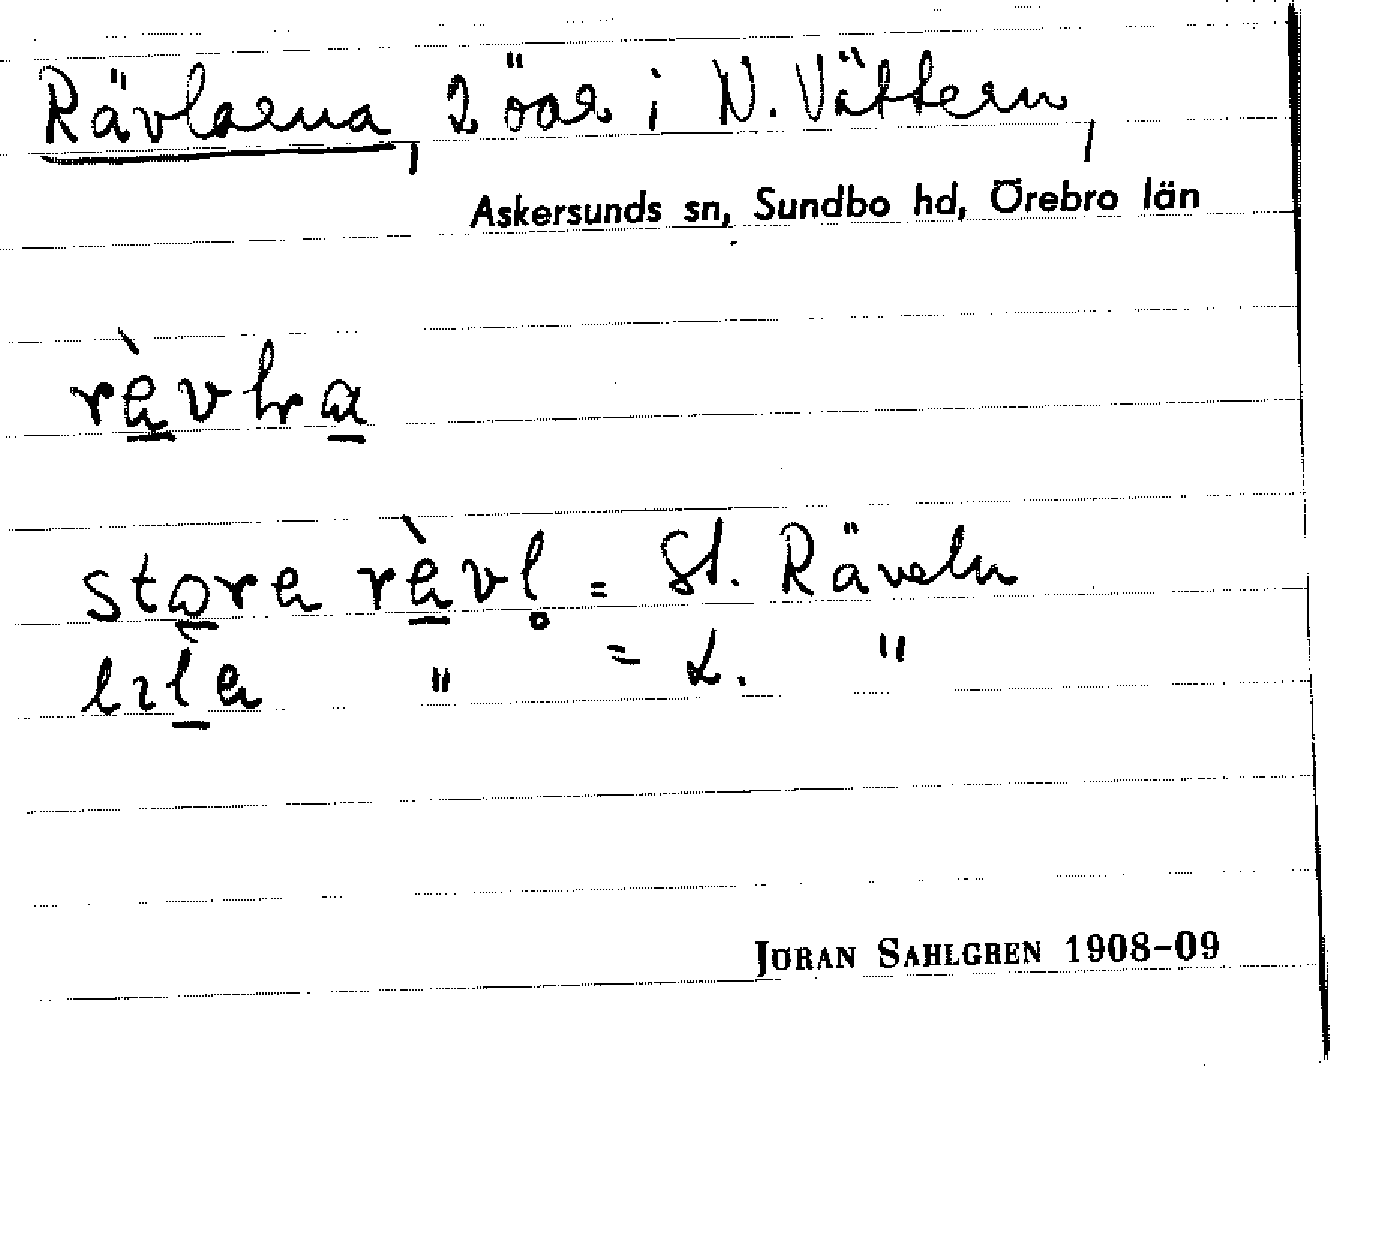 Rävlarna, 2 öar i N. Vättern,
Askersunds sn, Sundbo hd, Örebro län
rävlra
stora rävl̥ = St. Räveln
lɩla " = L. "
JÖRAN SAHLGREN 1908-09